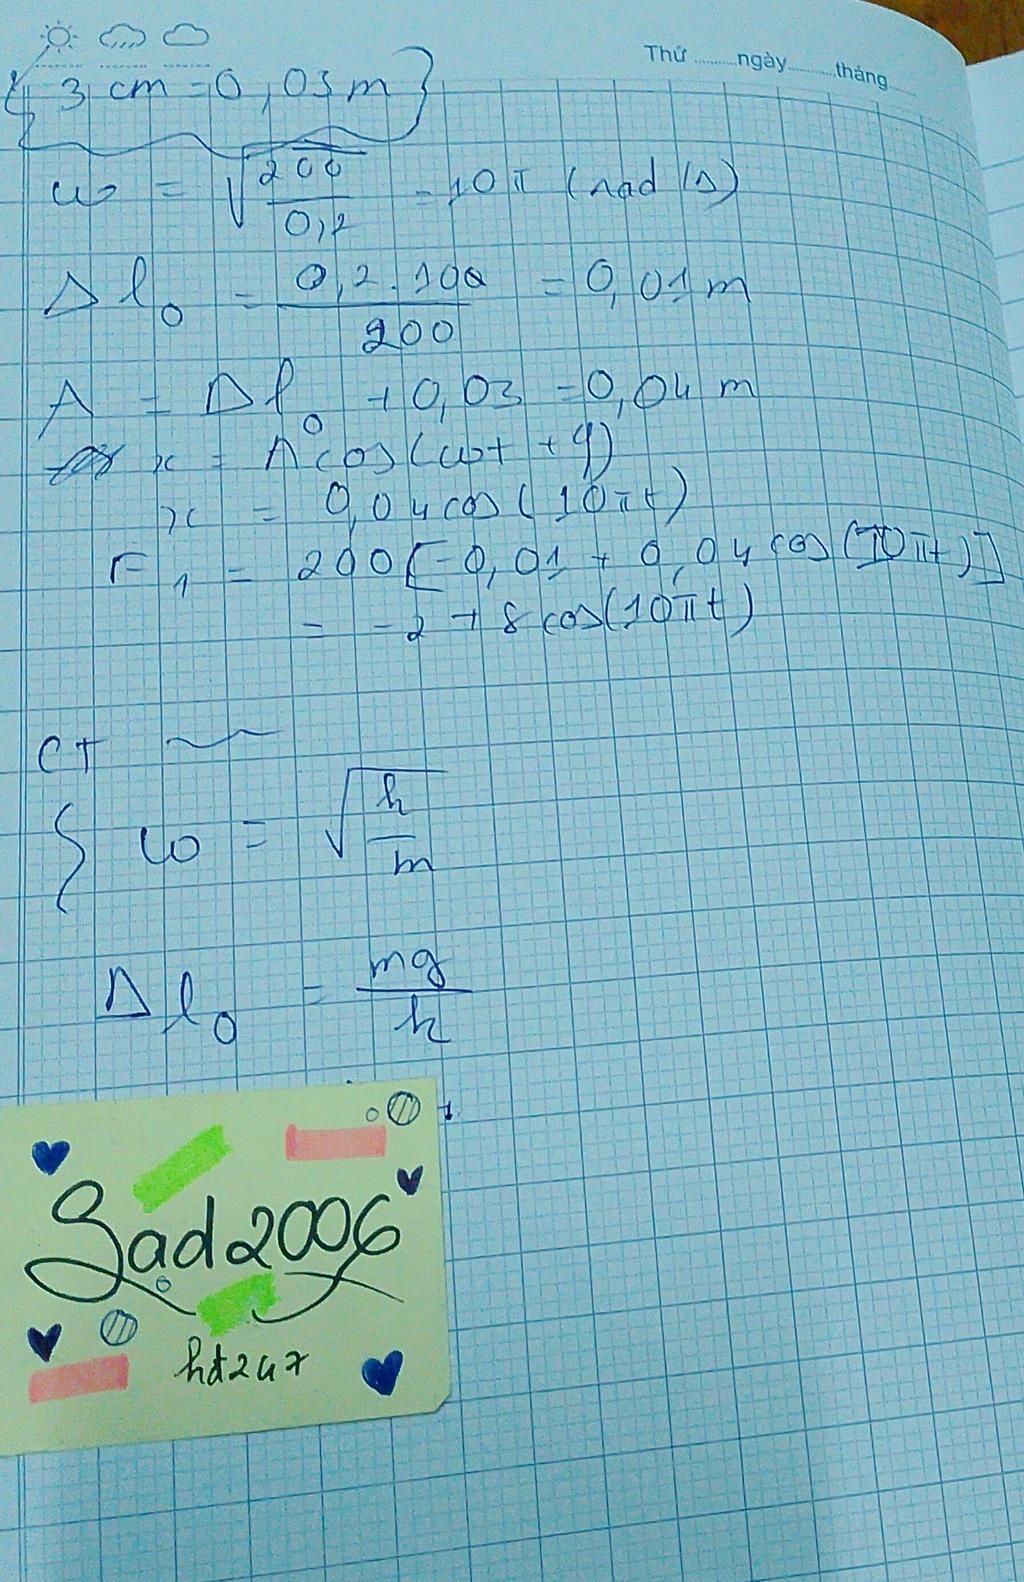 Thứ ........ngày........tháng......
3 cm = 0,03 m
ω = √(200/0,2) = 10π (rad/s)
Δl₀ = 0,2.100/200 = 0,01 m
A = Δl₀ + 0,03 = 0,04 m
x = A cos(ωt + φ)
x = 0,04 cos(10πt)
F₁ = 200[-0,01 + 0,04 cos(10πt)]
= -2 + 8 cos(10πt)
CT
ω = √(k/m)
Δl₀ = mg/k
Sad2006
hd247